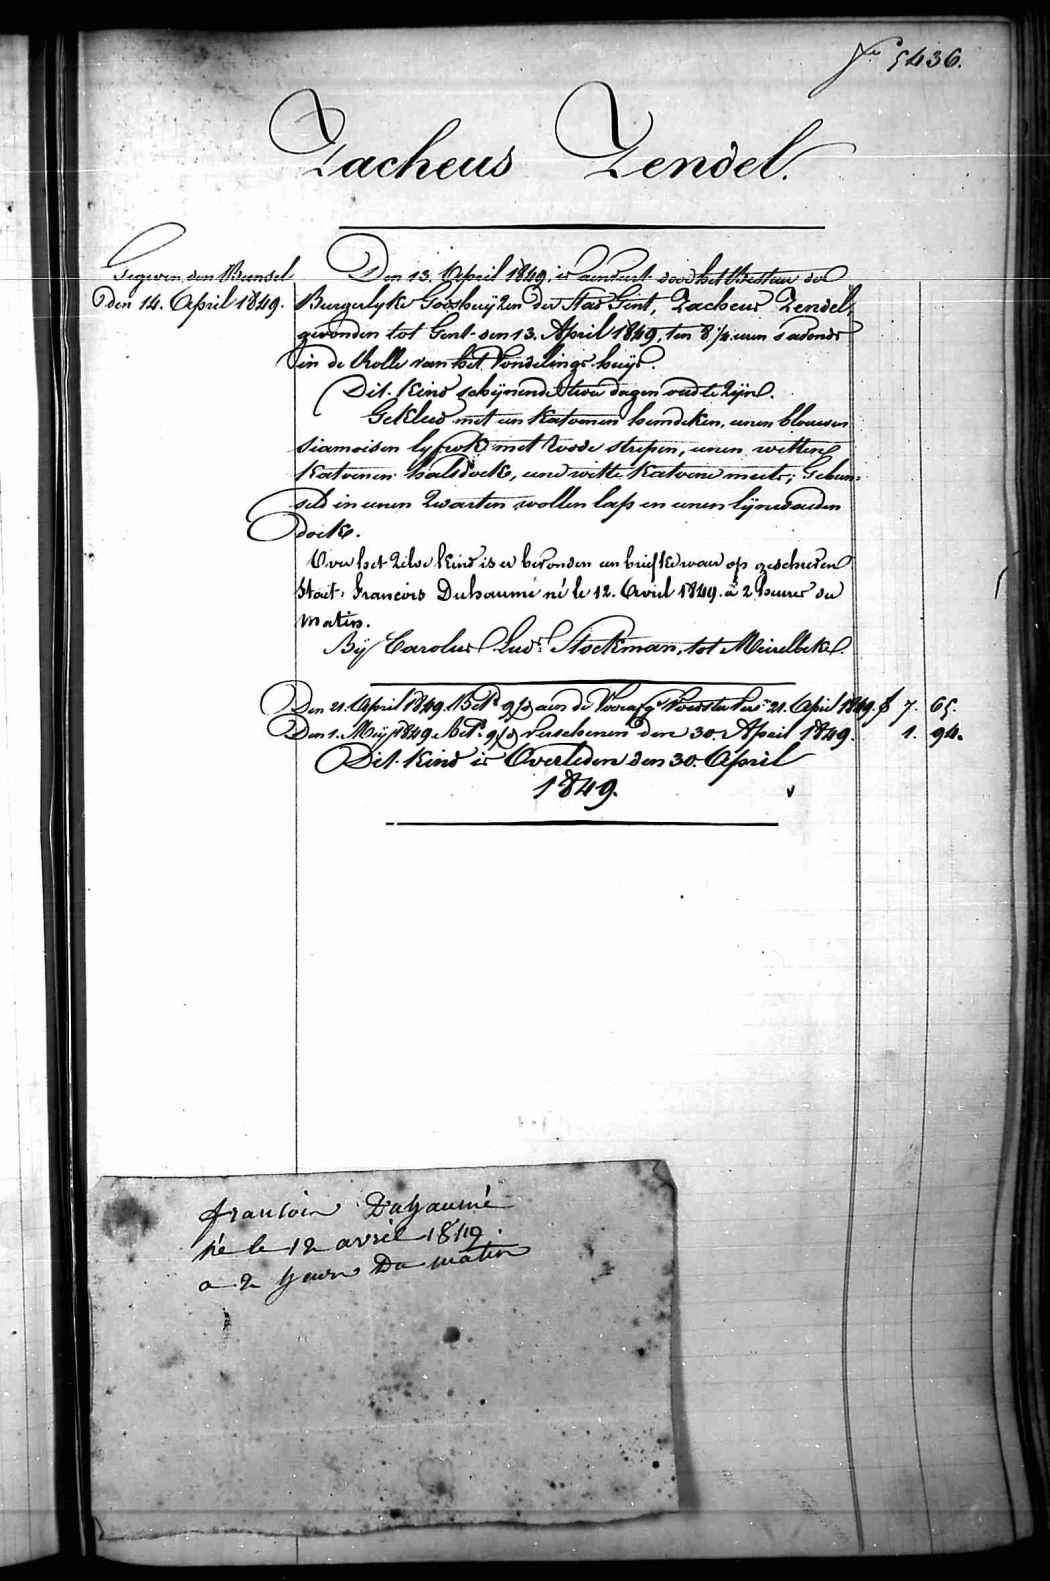 No 5436.
Zacheus Zendel.
Gegeven den Bundsel
den 14. April 1849.
Den 13. April 1849, is aenveert door het Bestuer der
Burgerlyke Godshuyzen der Stad Gent, Zacheus Zendel,
gevonden tot Gent den 13. April 1849, ten 8 1/4 uren s'avonds
in de Rolle van het Vondelings-huys.
Dit Kind schynende twee dagen oud te zyn.
Gekleed met een Katoenen hemdeken, eenen blauwen
siamoisen lyfrok met roode strepen, eenen witten
Katoenen halsdoek, eene witte Katoene muts; Gebun-
seld in eenen zwarten wollen lap en eenen lynwaeden
doek.
Over het zelve Kind is er bevonden een briefke waer op geschreven
staet: Francois Duhaumé né le 12. Avril 1849. à 2 heures du
matin.
By Carolus Lud. Stockman, tot Meirelbeke.
Den 21. April 1849. Bet. aen de Voorsz. Voedster Vers. 21. April 1849. f 7. 65.
Den 1. Mey 1849. Bet. Verschenen den 30. April 1849. 1. 94.
Dit Kind is Overleden den 30. April
1849.
francois Duhaumé
né le 12 avril 1849.
a 2 heure Du matin